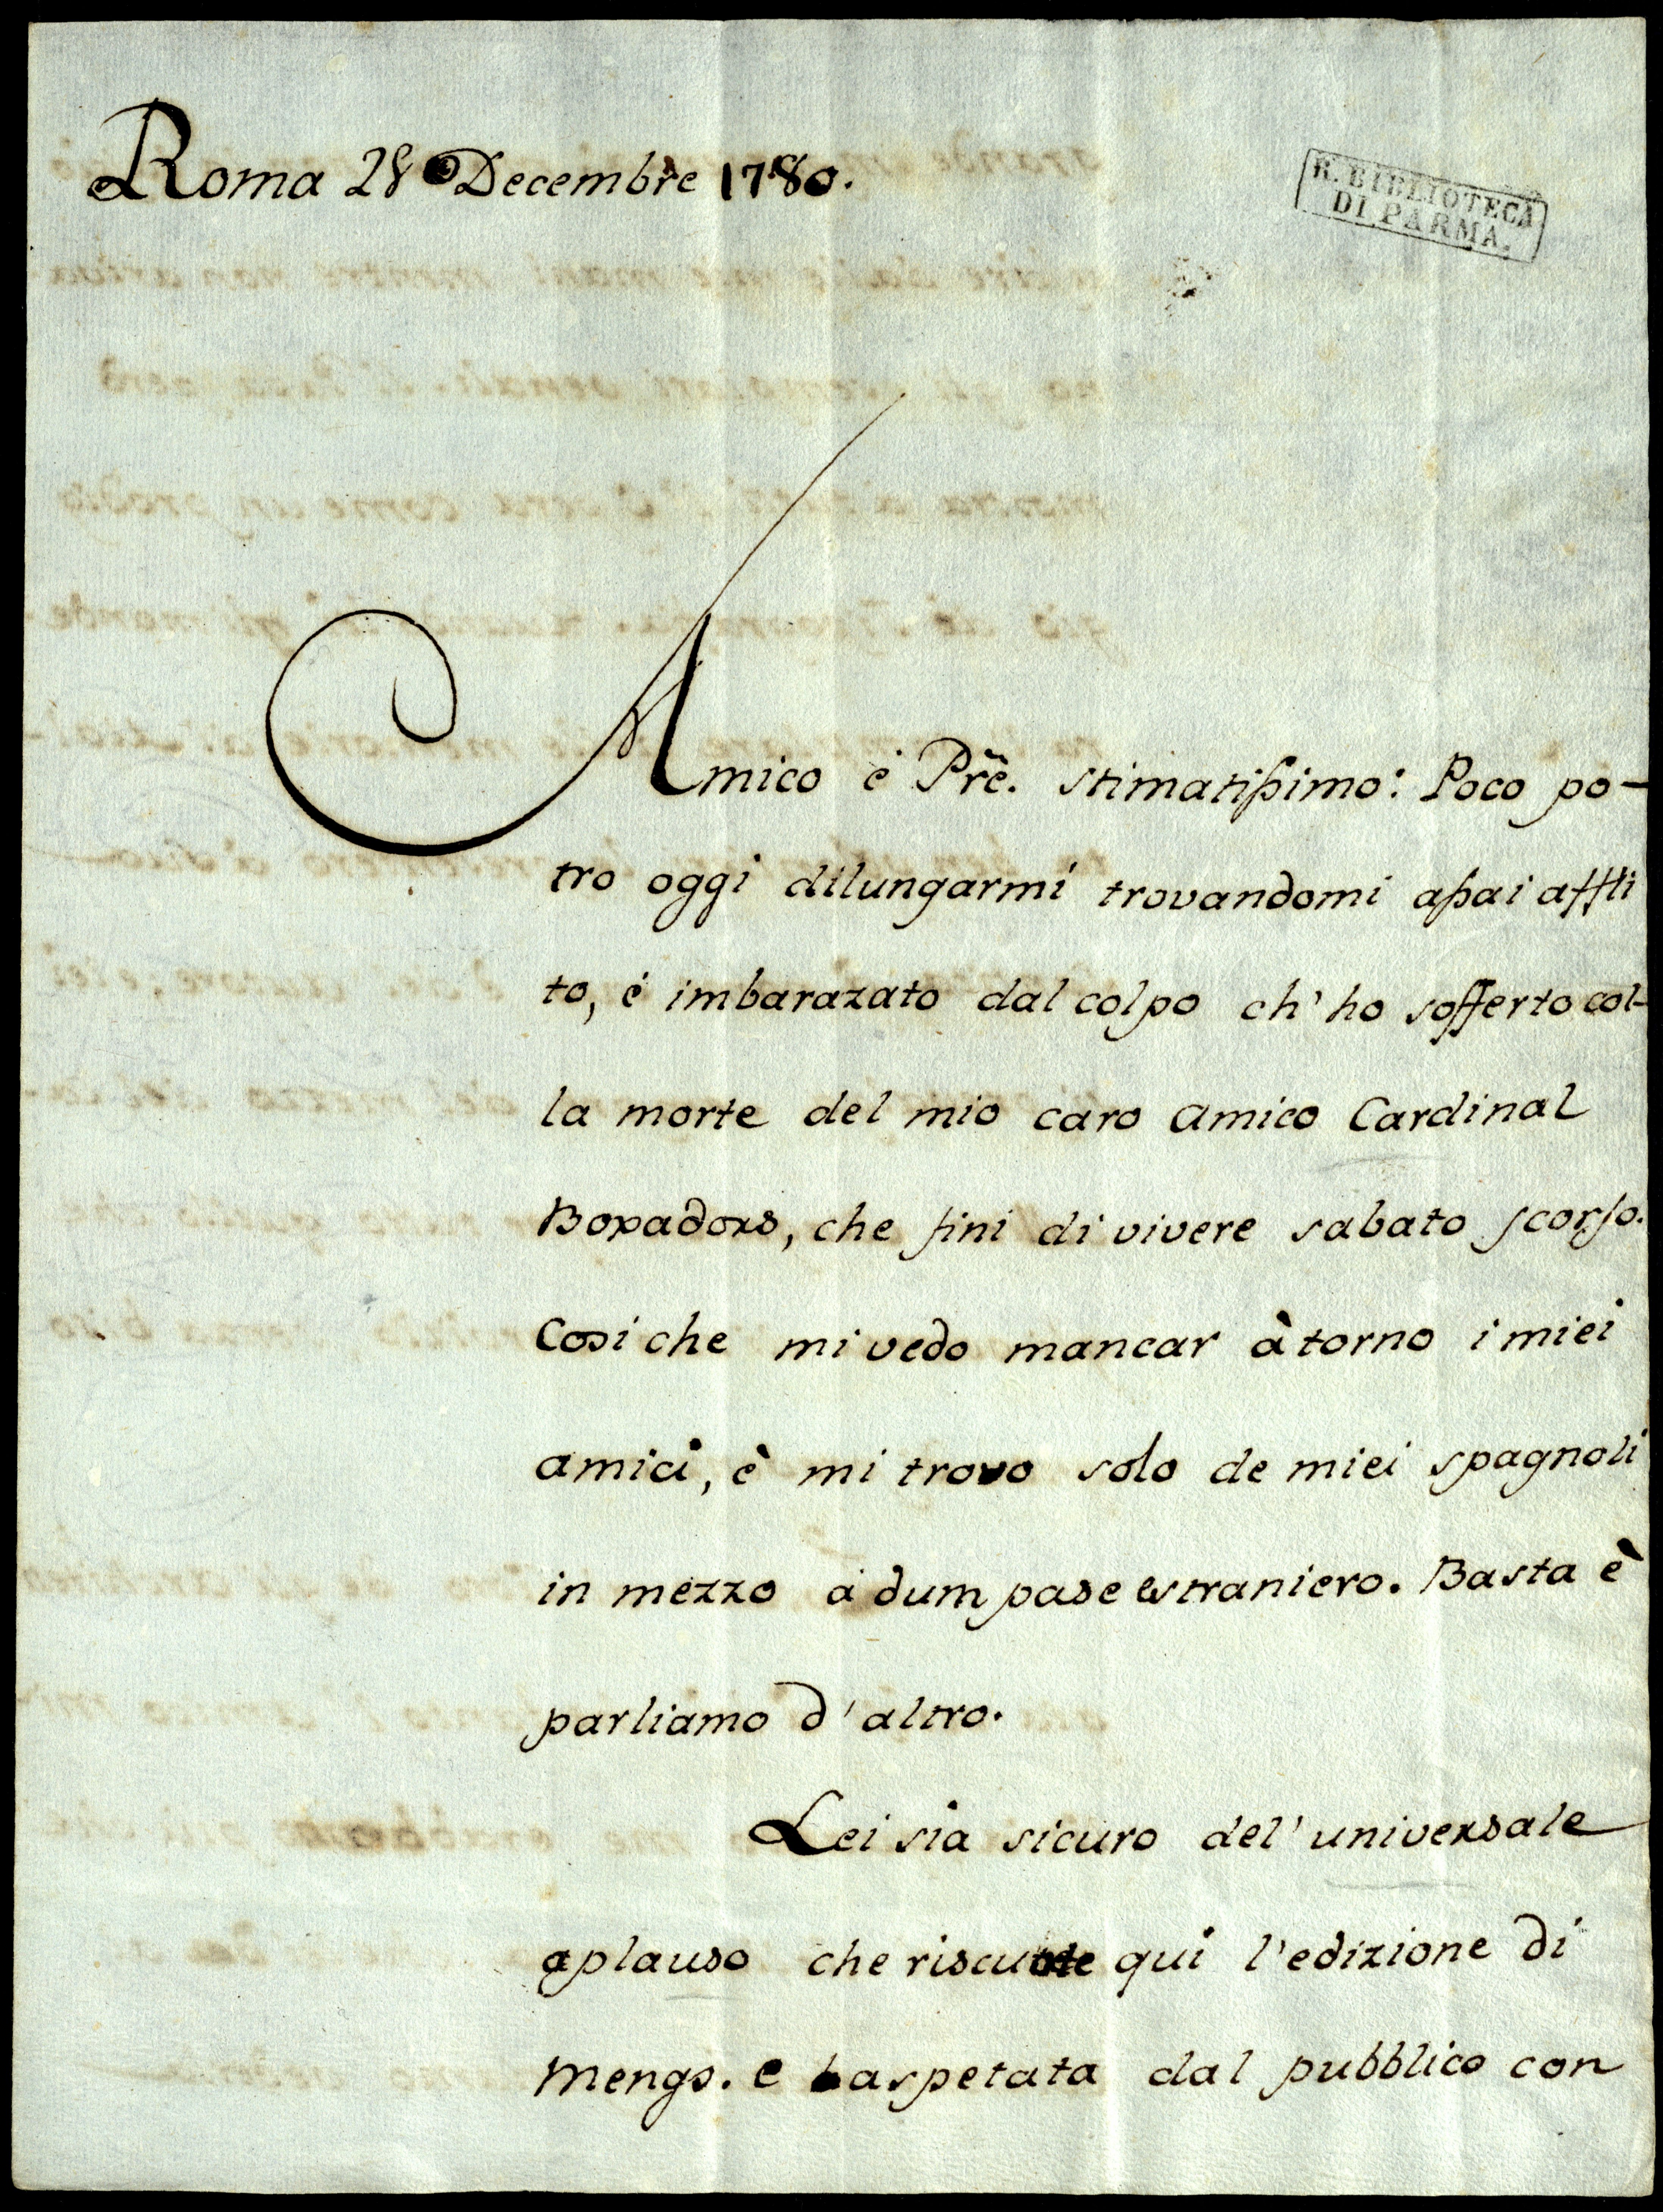 Roma 28 Decembre 1780.
R. BIBLIOTECA
DI PARMA.
Amico è Prẽ. stimatissimo: Poco po-
tro oggi dilungarmi trovandomi assai affli
to, è imbarazato dal colpo ch' ho sofferto col-
la morte del mio caro amico Cardinal
Boxadors, che finì di vivere sabato scorso.
Cosi che mi vedo mancar à torno i miei
amici, è mi trovo solo de miei spagnoli
in mezzo à dum paese estraniero. Basta è
parliamo d'altro.
Lei sia sicuro del' universale
aplauso che riscuote qui l'edizione di
Mengs. e aspetata dal pubblico con